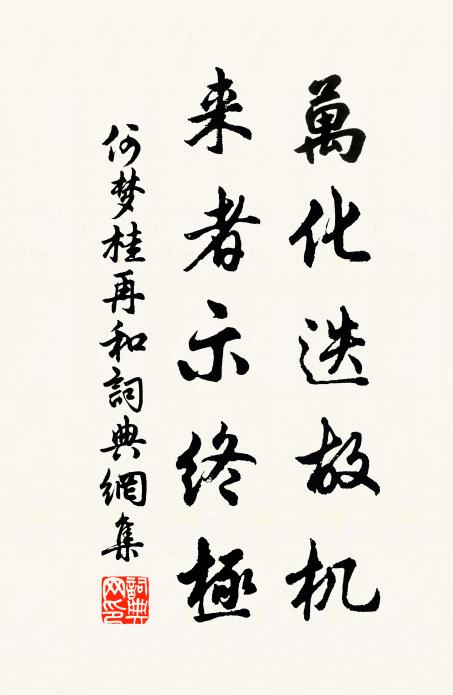 萬化迭故机
来者示终極
何梦桂再和詞典網集
詞典網印